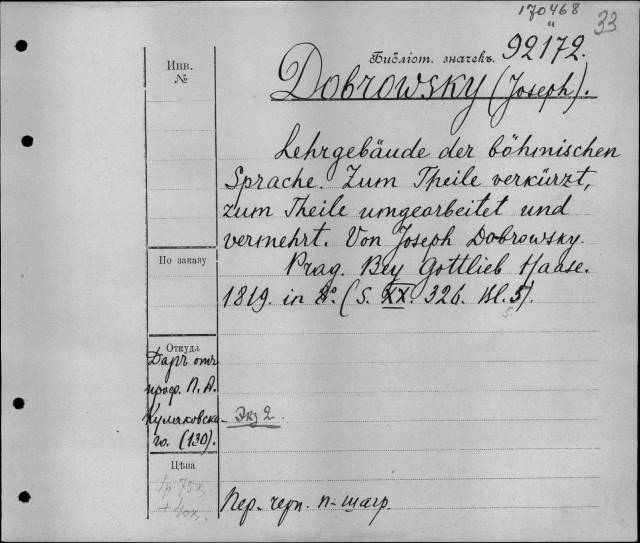 170468
"
33
Библіот. значекъ. 92172.
Инв.
№
Dobrowsky (Joseph).
Lehrgebäude der böhmischen
Sprache. Zum Theile verkürzt,
zum Theile umgearbeitet und
vermehrt. Von Joseph Dobrowsky.
Prag. Bey Gottlieb Haase.
1819. in 8º. (S. XX. 326. Bl. 5).
По заказу
Откуда
Даръ отъ
проф. П. А.
Кулаковска-
го. (130).
Экз 2.
Цѣна
1р 75к
+ 40к.
Пер. черн. п-шагр.